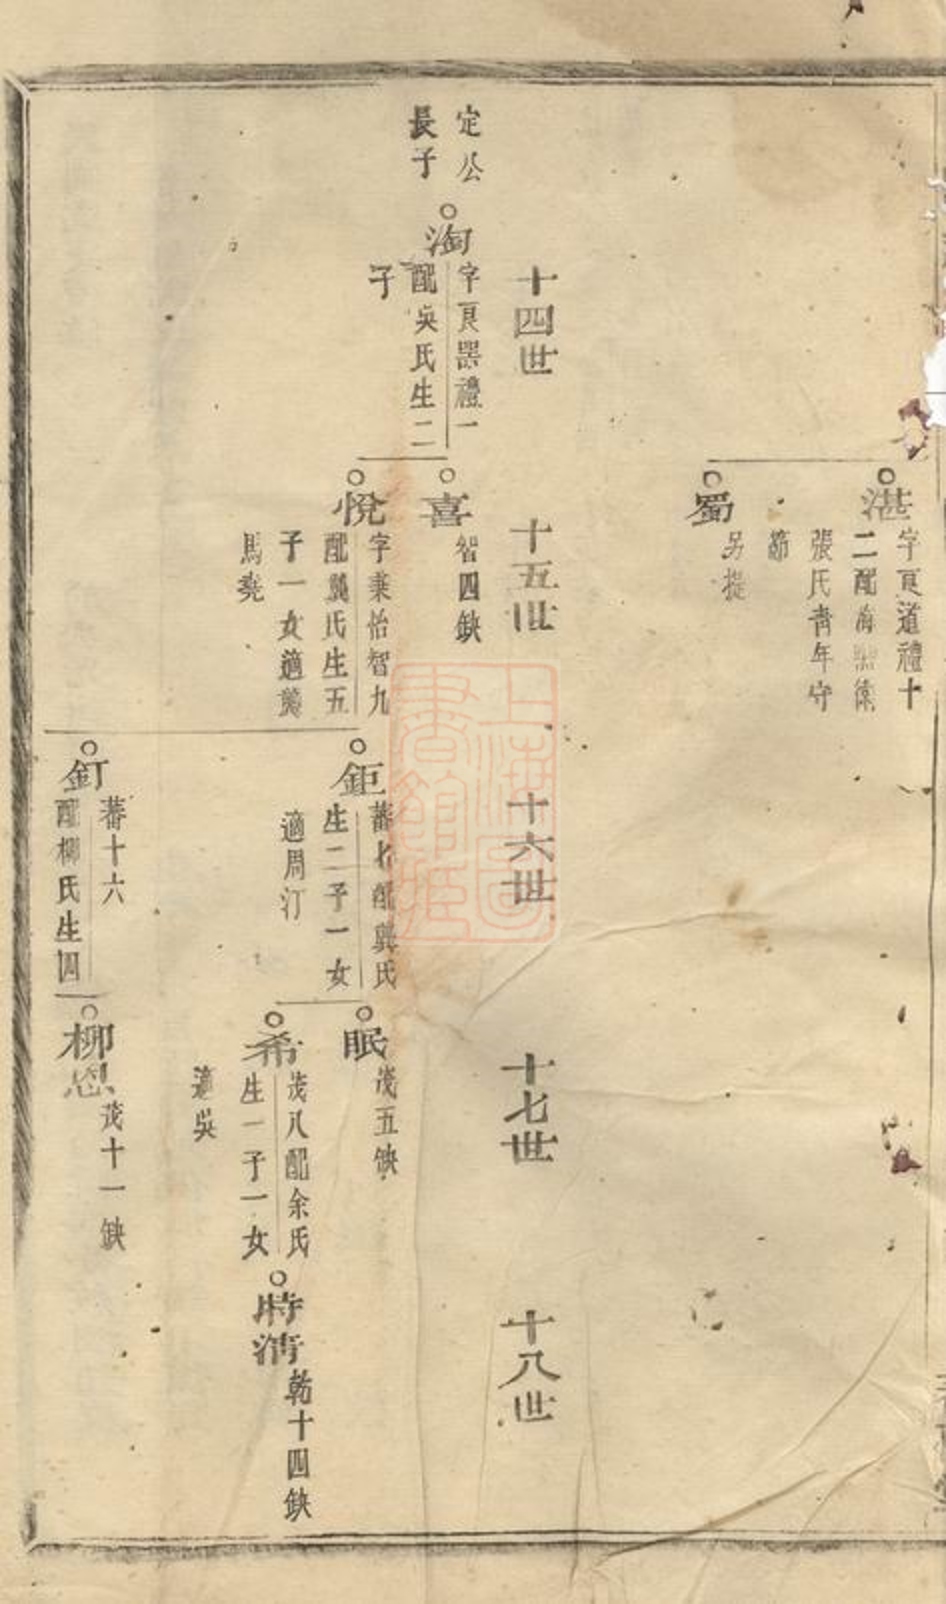 湛
字良道禮十
二配海
張氏青年守
節
蜀
另提
十四世
十五世
十六世
十七世
十八世
定公
長子
淘
字良器禮一
配吳氏生二
子
喜
智四缺
悅
字秉怡智九
配龔氏生五
子一女適龔
馬堯
鉅
蕃 配龔氏
生二子一女
適周汀
釘
蕃十六
配柳氏生四
眠
茂五缺
希
茂八配余氏
生一子一女
適吳
柳恩
茂十一缺
時清
乾十四缺
上海圖
書館藏